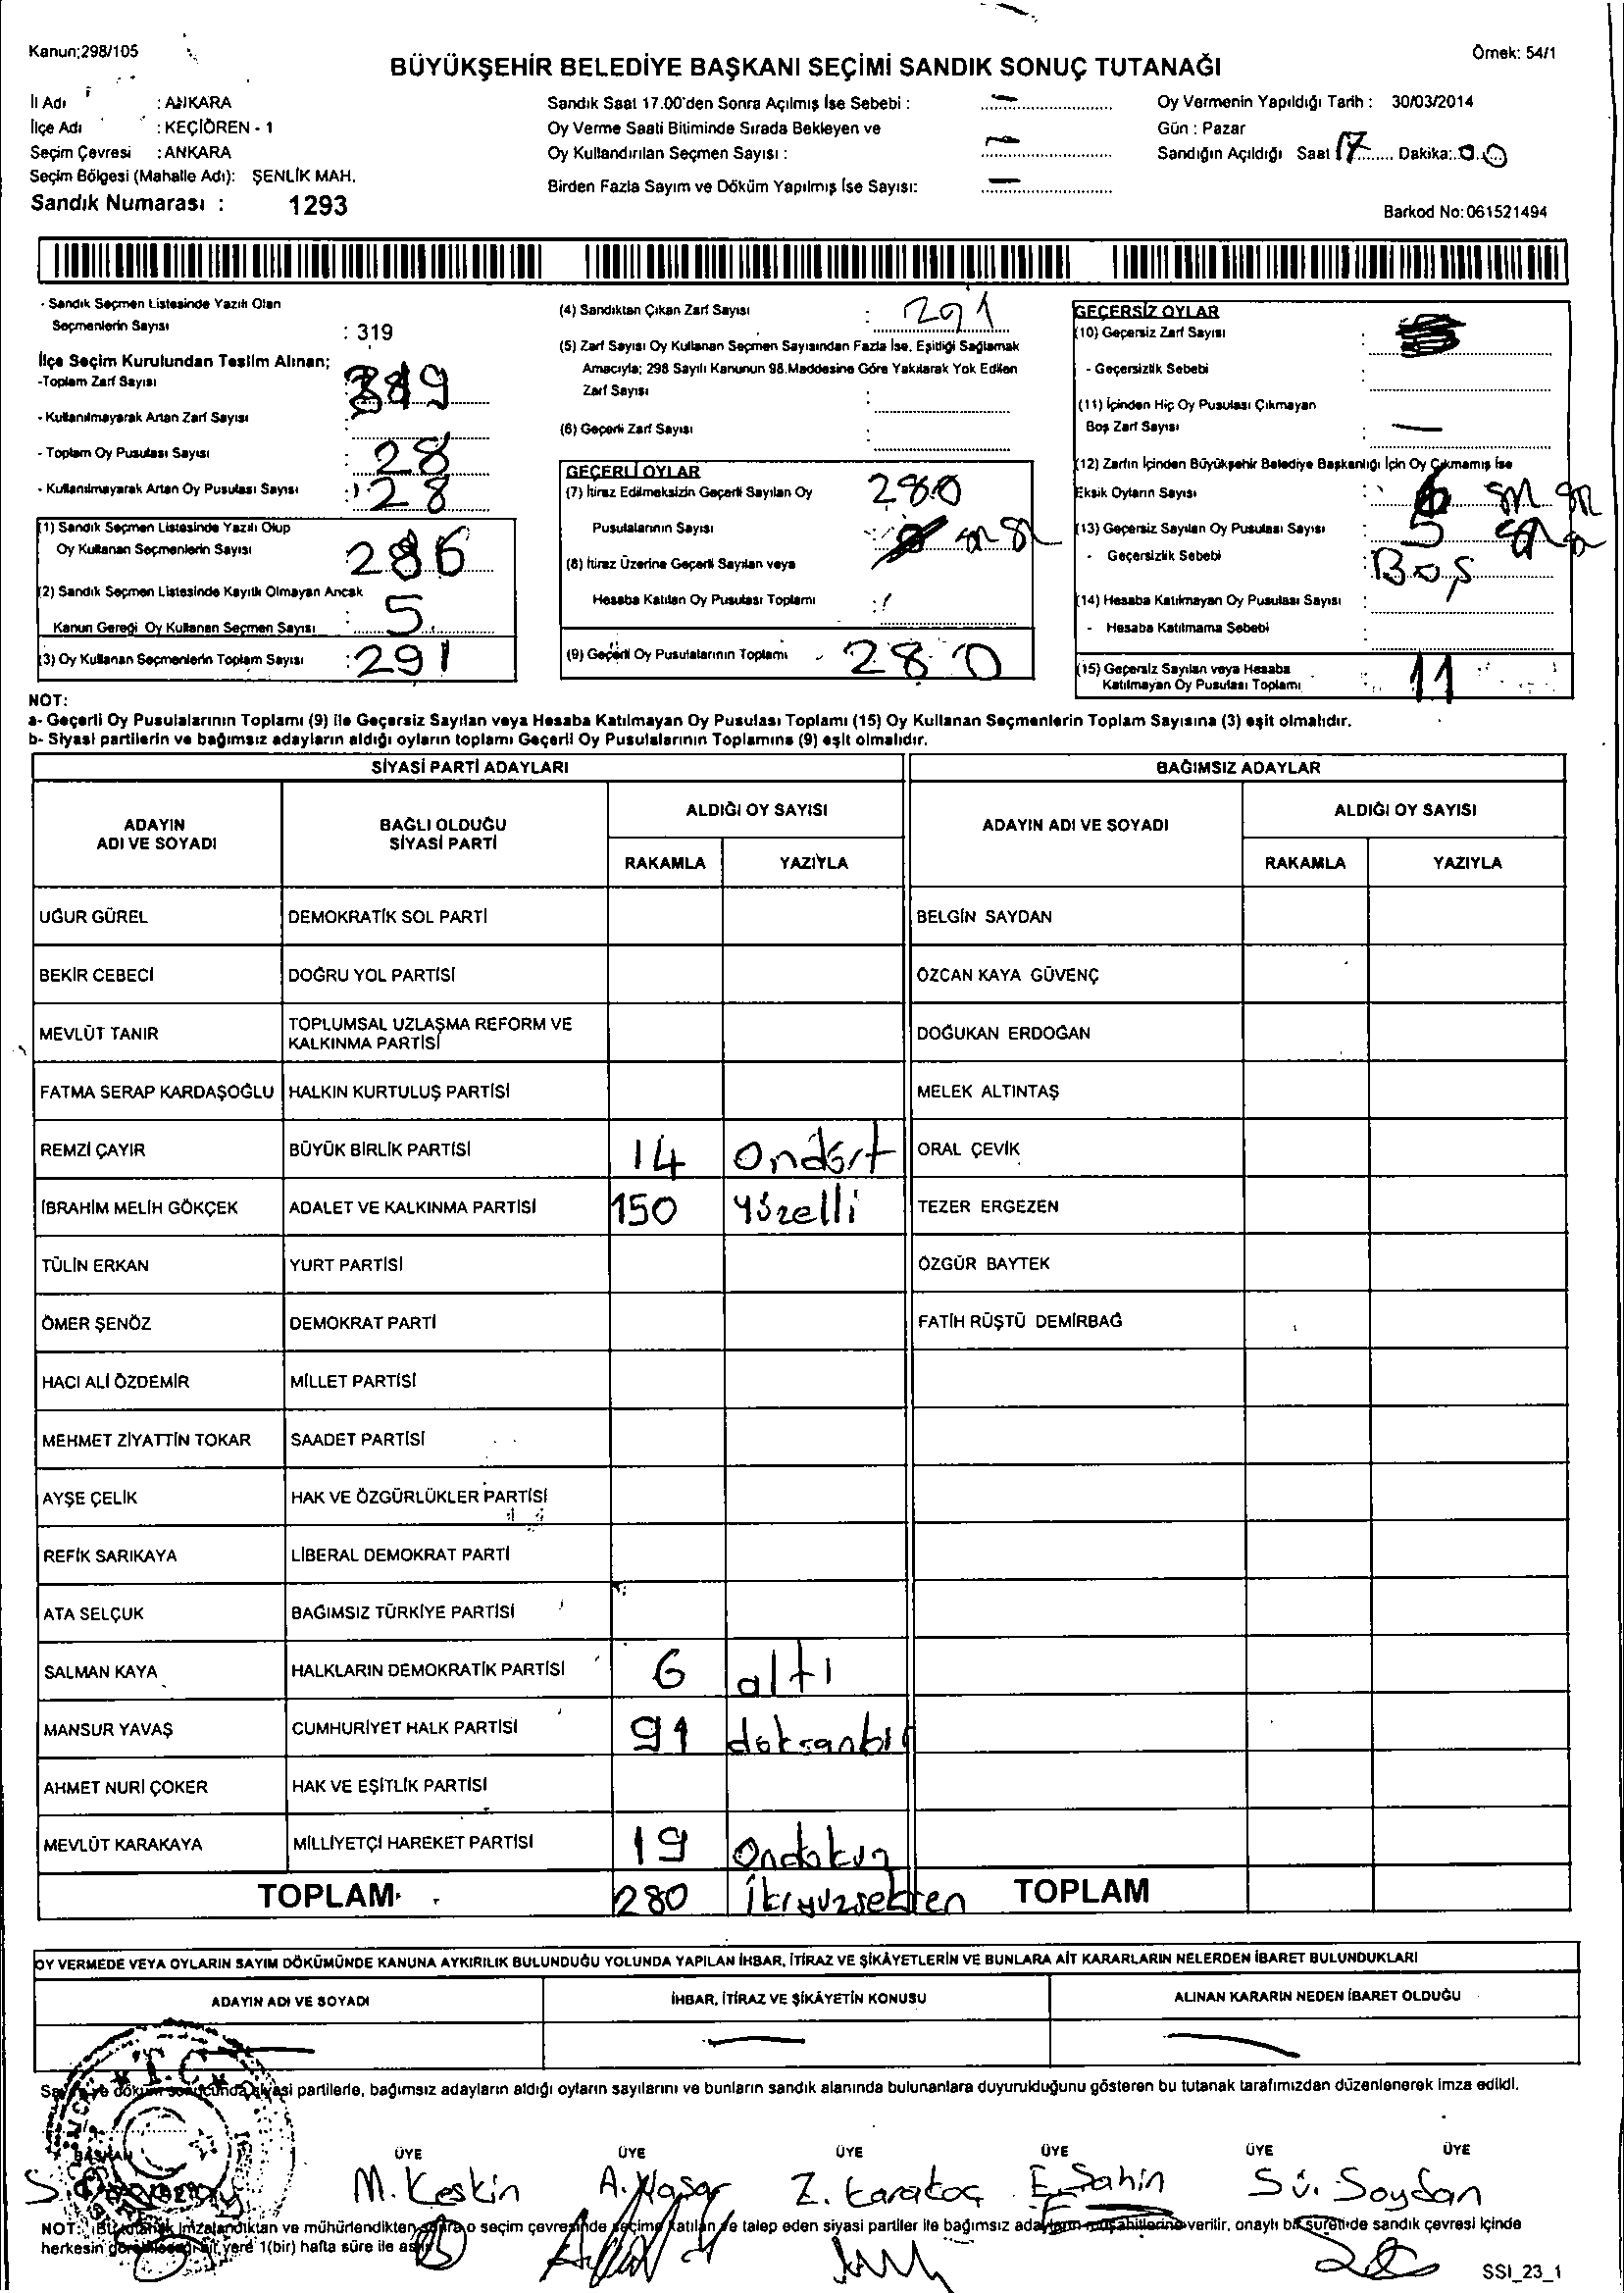 Kanun;298/105
Örnek: 54/1
BÜYÜKŞEHİR BELEDİYE BAŞKANI SEÇİMİ SANDIK SONUÇ TUTANAĞI
İl Adı : ANKARA
İlçe Adı : KEÇİÖREN - 1
Seçim Çevresi : ANKARA
Seçim Bölgesi (Mahalle Adı): ŞENLİK MAH.
Sandık Numarası : 1293
Sandık Saat 17.00'den Sonra Açılmış İse Sebebi : –
Oy Verme Saati Bitiminde Sırada Bekleyen ve
Oy Kullandırılan Seçmen Sayısı : –
Birden Fazla Sayım ve Döküm Yapılmış İse Sayısı: –
Oy Vermenin Yapıldığı Tarih : 30/03/2014
Gün : Pazar
Sandığın Açıldığı Saat 17 Dakika: 00
Barkod No:061521494
- Sandık Seçmen Listesinde Yazılı Olan
Seçmenlerin Sayısı : 319
İlçe Seçim Kurulundan Teslim Alınan;
-Toplam Zarf Sayısı
- Kullanılmayarak Artan Zarf Sayısı :
- Toplam Oy Pusulası Sayısı : 28
- Kullanılmayarak Artan Oy Pusulası Sayısı : 28
(1) Sandık Seçmen Listesinde Yazılı Olup
Oy Kullanan Seçmenlerin Sayısı 286
(2) Sandık Seçmen Listesinde Kayıtlı Olmayan Ancak
Kanun Gereği Oy Kullanan Seçmen Sayısı : 5
(3) Oy Kullanan Seçmenlerin Toplam Sayısı : 291
(4) Sandıktan Çıkan Zarf Sayısı : 291
(5) Zarf Sayısı Oy Kullanan Seçmen Sayısından Fazla İse, Eşitliği Sağlamak
Amacıyla; 298 Sayılı Kanunun 98.Maddesine Göre Yakılarak Yok Edilen
Zarf Sayısı :
(6) Geçerli Zarf Sayısı :
GEÇERLİ OYLAR
(7) İtiraz Edilmeksizin Geçerli Sayılan Oy 280
Pusulalarının Sayısı :
(8) İtiraz Üzerine Geçerli Sayılan veya
Hesaba Katılan Oy Pusulası Toplamı :
(9) Geçerli Oy Pusulalarının Toplamı 280
GEÇERSİZ OYLAR
(10) Geçersiz Zarf Sayısı :
- Geçersizlik Sebebi :
(11) İçinden Hiç Oy Pusulası Çıkmayan
Boş Zarf Sayısı : –
(12) Zarfın İçinden Büyükşehir Belediye Başkanlığı İçin Oy Çıkmamış İse
Eksik Oyların Sayısı : 6
(13) Geçersiz Sayılan Oy Pusulası Sayısı : 5
- Geçersizlik Sebebi : Boş
(14) Hesaba Katılmayan Oy Pusulası Sayısı :
- Hesaba Katılmama Sebebi :
(15) Geçersiz Sayılan veya Hesaba
Katılmayan Oy Pusulası Toplamı : 11
NOT:
a- Geçerli Oy Pusulalarının Toplamı (9) ile Geçersiz Sayılan veya Hesaba Katılmayan Oy Pusulası Toplamı (15) Oy Kullanan Seçmenlerin Toplam Sayısına (3) eşit olmalıdır.
b- Siyasi partilerin ve bağımsız adayların aldığı oyların toplamı Geçerli Oy Pusulalarının Toplamına (9) eşit olmalıdır.
SİYASİ PARTİ ADAYLARI BAĞIMSIZ ADAYLAR
ADAYIN ADI VE SOYADI BAĞLI OLDUĞU SİYASİ PARTİ ALDIĞI OY SAYISI ADAYIN ADI VE SOYADI ALDIĞI OY SAYISI
RAKAMLA YAZIYLA RAKAMLA YAZIYLA
UĞUR GÜREL DEMOKRATİK SOL PARTİ BELGİN SAYDAN
BEKİR CEBECİ DOĞRU YOL PARTİSİ ÖZCAN KAYA GÜVENÇ
MEVLÜT TANIR TOPLUMSAL UZLAŞMA REFORM VE KALKINMA PARTİSİ DOĞUKAN ERDOĞAN
FATMA SERAP KARDAŞOĞLU HALKIN KURTULUŞ PARTİSİ MELEK ALTINTAŞ
REMZİ ÇAYIR BÜYÜK BİRLİK PARTİSİ 14 ondört ORAL ÇEVİK
İBRAHİM MELİH GÖKÇEK ADALET VE KALKINMA PARTİSİ 150 yüzelli TEZER ERGEZEN
TÜLİN ERKAN YURT PARTİSİ ÖZGÜR BAYTEK
ÖMER ŞENÖZ DEMOKRAT PARTİ FATİH RÜŞTÜ DEMİRBAĞ
HACI ALİ ÖZDEMİR MİLLET PARTİSİ
MEHMET ZİYATTİN TOKAR SAADET PARTİSİ
AYŞE ÇELİK HAK VE ÖZGÜRLÜKLER PARTİSİ
REFİK SARIKAYA LİBERAL DEMOKRAT PARTİ
ATA SELÇUK BAĞIMSIZ TÜRKİYE PARTİSİ
SALMAN KAYA HALKLARIN DEMOKRATİK PARTİSİ 6 altı
MANSUR YAVAŞ CUMHURİYET HALK PARTİSİ 91 doksanbir
AHMET NURİ ÇOKER HAK VE EŞİTLİK PARTİSİ
MEVLÜT KARAKAYA MİLLİYETÇİ HAREKET PARTİSİ 19 Ondokuz
TOPLAM 280 İkiyüzseksen TOPLAM
OY VERMEDE VEYA OYLARIN SAYIM DÖKÜMÜNDE KANUNA AYKIRILIK BULUNDUĞU YOLUNDA YAPILAN İHBAR, İTİRAZ VE ŞİKÂYETLERİN VE BUNLARA AİT KARARLARIN NELERDEN İBARET BULUNDUKLARI
ADAYIN ADI VE SOYADI İHBAR, İTİRAZ VE ŞİKÂYETİN KONUSU ALINAN KARARIN NEDEN İBARET OLDUĞU
Sayım ve döküm sonucunda siyasi partilerle, bağımsız adayların aldığı oyların sayılarını ve bunların sandık alanında bulunanlara duyurulduğunu gösteren bu tutanak tarafımızdan düzenlenerek imza edildi.
T.C.
BAŞKAN ÜYE ÜYE ÜYE ÜYE ÜYE ÜYE
M. Keskin A. Yaşar Z. Karakoç E. Şahin Sü. Soydan
NOT: Bu tutanak imzalandıktan ve mühürlendikten sonra o seçim çevresinde seçime katılan ve talep eden siyasi partiler ile bağımsız adayların müşahitlerine verilir, onaylı bir sureti de sandık çevresi içinde
herkesin görebileceği bir yere 1(bir) hafta süre ile asılır.
SSI_23_1